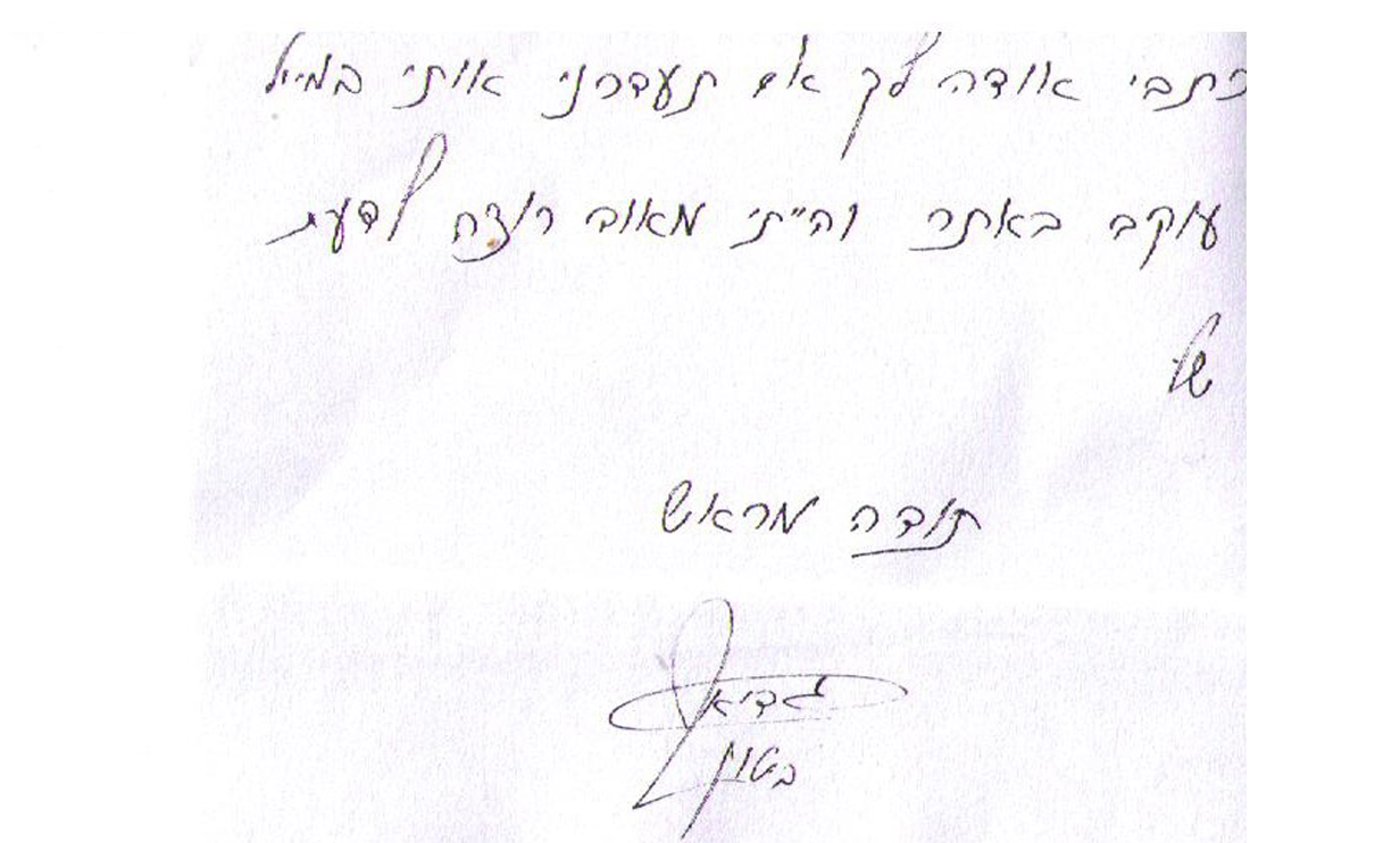 כתבי אודה לך אם תעדכני אותי במייל
עוקב באתר והייתי מאוד רוצה לדעת
של
תודה מראש
גדיאל
בטון